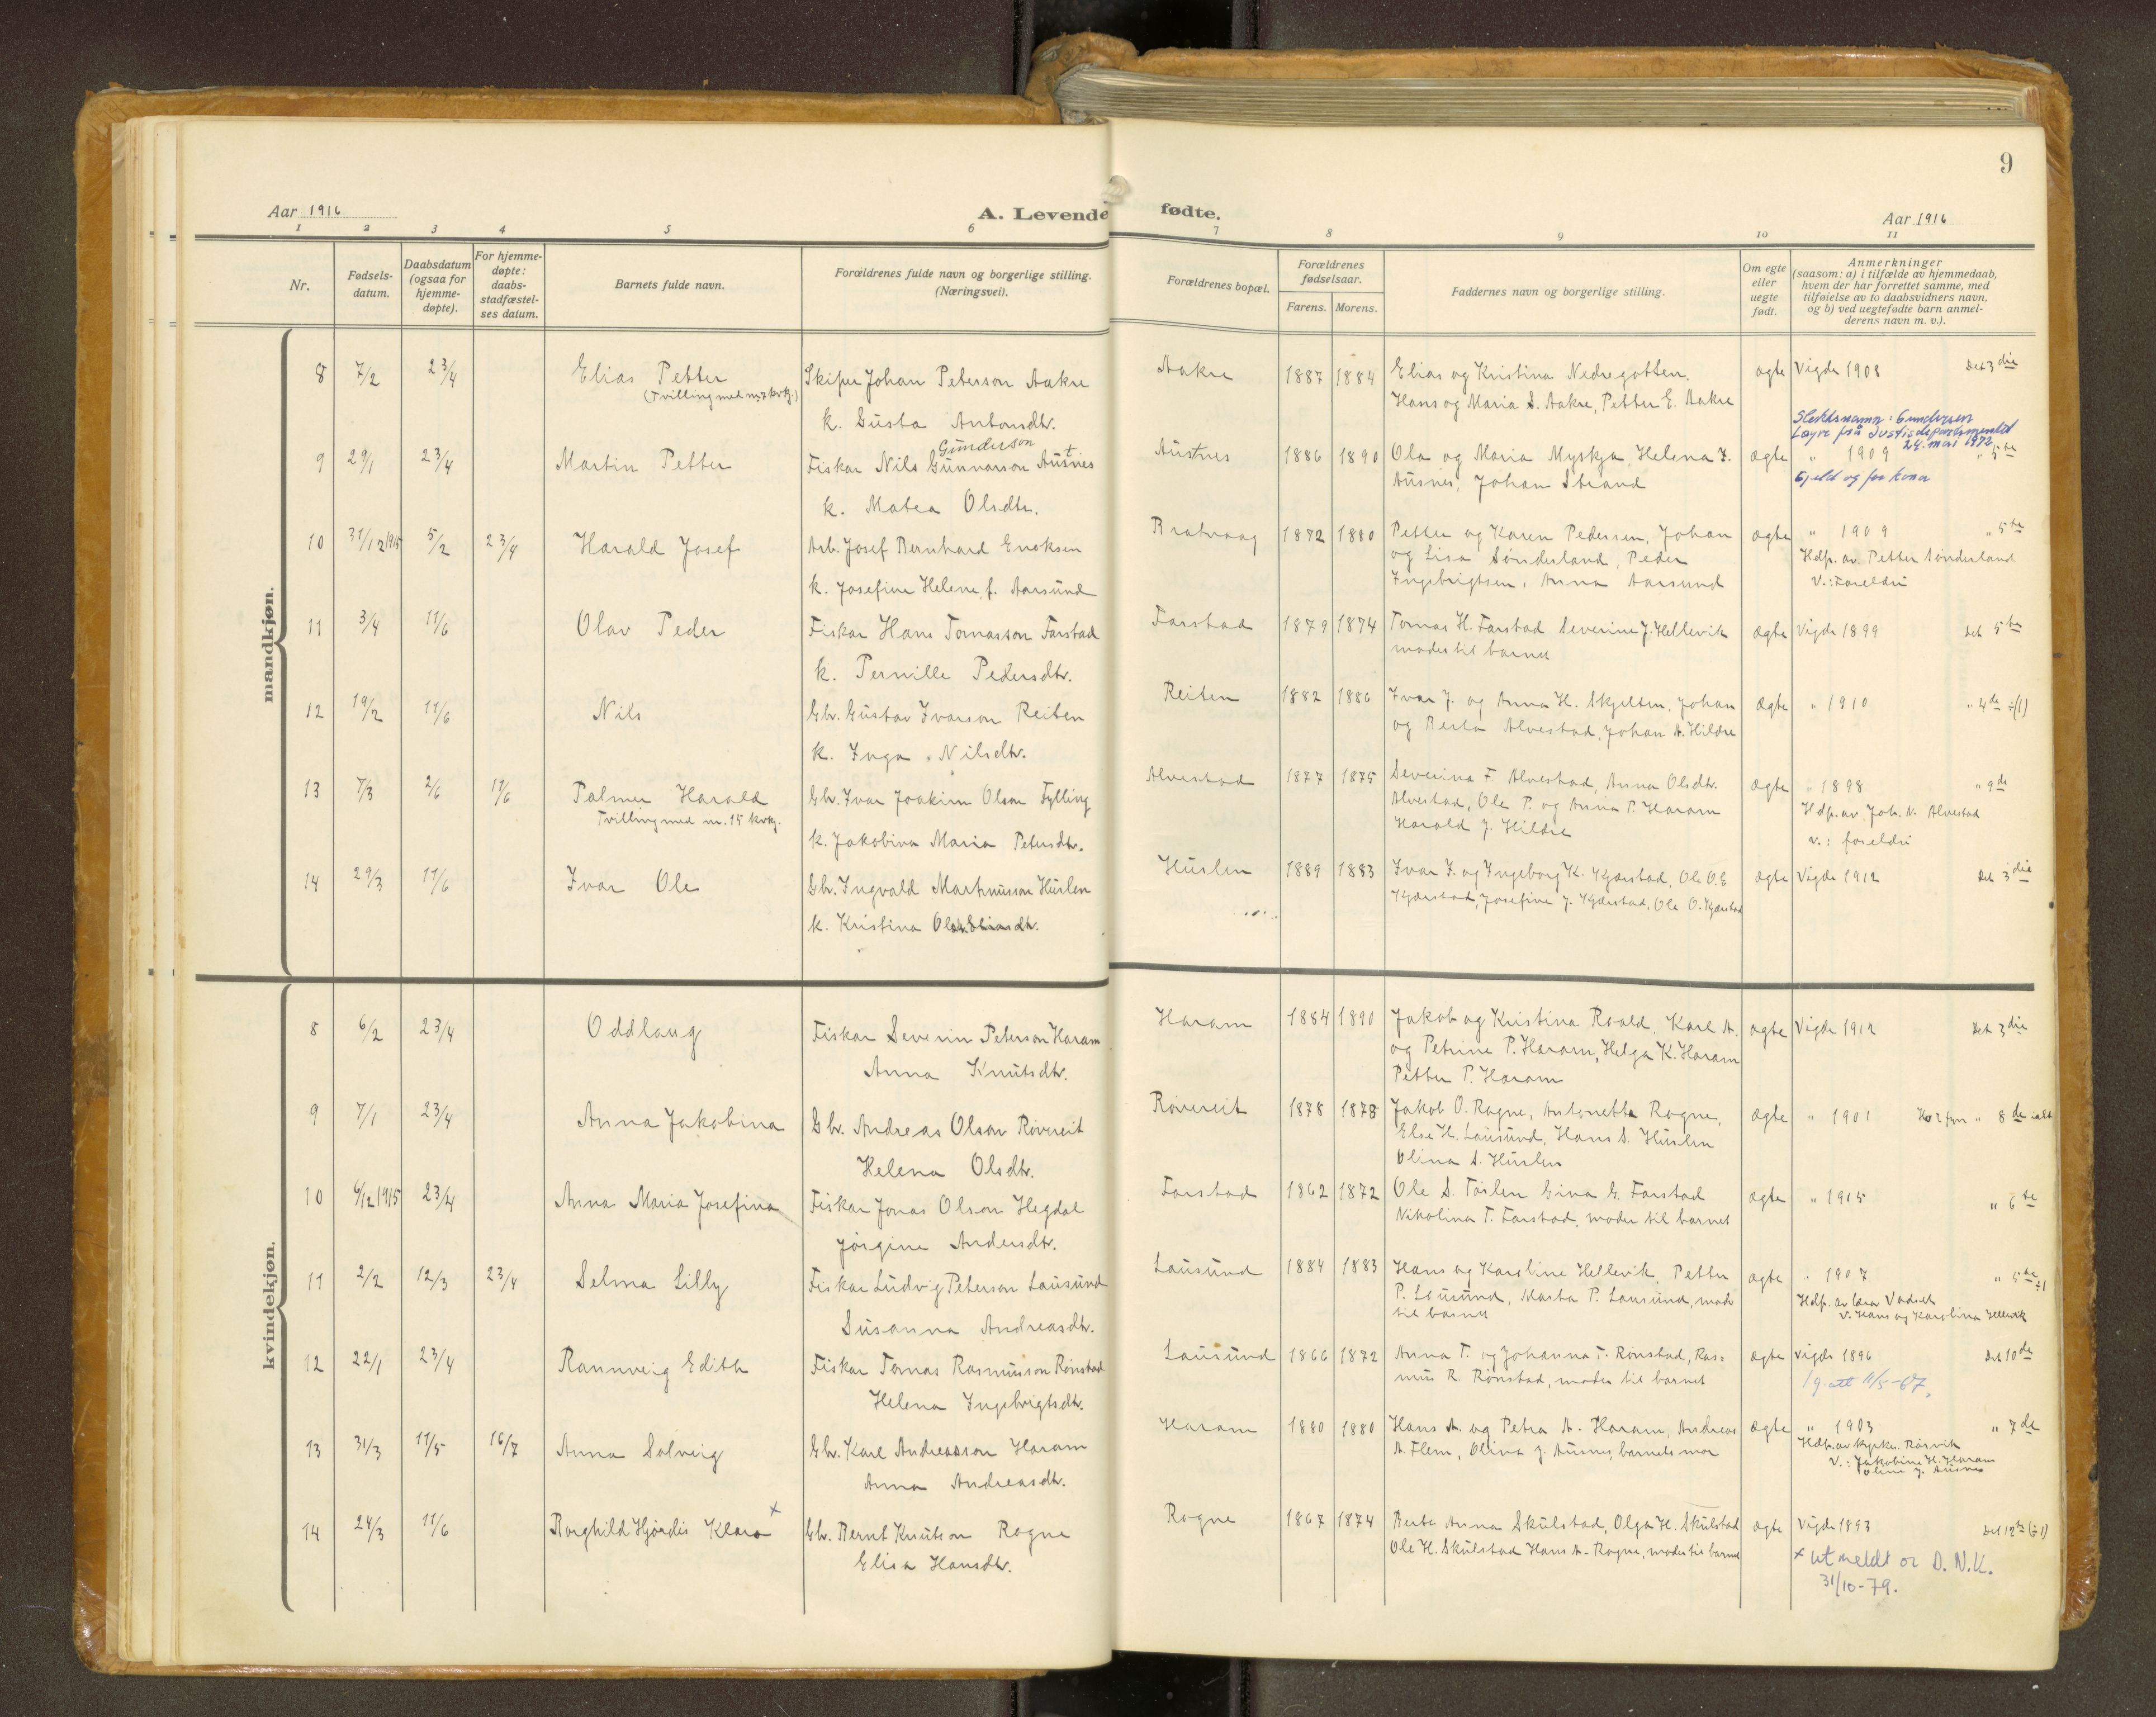 9
Aar 1916
A. Levende fødte.
Aar 1916
1 2 3 4 5 6 7 8 9 10 11
Nr.
Fødsels-
datum.
Daabsdatum
(ogsaa for
hjemme-
døpte).
For hjemme-
døpte:
daabs-
stadfæstel-
ses datum.
Barnets fulde navn.
Forældrenes fulde navn og borgerlige stilling.
(Næringsvei).
Forældrenes bopæl.
Forældrenes
fødselsaar.
Farens. Morens.
Faddernes navn og borgerlige stilling.
Om egte
eller
uegte
født.
Anmerkninger
(saasom: a) i tilfælde av hjemmedaab,
hvem der har forrettet samme, med
tilføielse av to daabsvidners navn,
og b) ved uegtefødte barn anmel-
derens navn m. v.).
mandkjøn.
8 7/2 23/4 Elias Petter
(Tvilling med nr. 7 kvkj.)
Skiper Johan Peterson Aakre
k. Gusta Antonsdtr.
Aakre 1887 1884
Elias og Kristina Nedregotten,
Hans og Maria S. Aakre, Petter E. Aakre
ægte Vigde 1908 Det 3die
Slektsnamn: Gundersen
Løyve frå Justisdepartementet
24. mai 1972
9 29/1 23/4 Martin Petter
Gunderson
Fiskar Nils Gunnarson Austnes
k. Matea Olsdtr.
Austnes 1886 1890
Ola og Maria Myskja, Helena J.
Ausnes, Johan Strand
ægte " 1909 " 5te
Gjeld og for kona
10 31/12 1915 5/2 23/4 Harald Josef
Arb. Josef Bernhard Enoksen
k. Josefine Helene f. Aarsund
Bratvaag 1872 1880
Petter og Karen Pedersen, Johan
og Lisa Sønderland, Peder
Ingebrigtsen, Anna Aarsund
ægte " 1909 " 5te
Hdp. av Petter Sønderland
V.: Foreldri
11 3/4 11/6 Olav Peder
Fiskar Hans Tomasson Farstad
k. Pernille Pedersdtr.
Farstad 1879 1874
Tomas H. Farstad Severine J. Hellevik
moder til barnet
ægte Vigde 1899 Det 5te
12 19/2 11/6 Nils
Gbr. Gustav Ivarson Reiten
k. Inga Nilsdtr.
Reiten 1882 1886
Ivar J. og Anna H. Skjelten, Johan
og Berta Alvestad, Johan A. Hildre
ægte " 1910 " 4de ÷(1)
13 7/3 2/6 11/6 Palmer Harald
Tvilling med nr. 15 kvkj.
Gbr. Ivar Joakim Olson Fylling
k. Jakobina Maria Petersdtr.
Alvestad 1877 1875
Severina F. Alvestad, Anna Olsdtr.
Alvestad, Ole P. og Anna P. Haram
Harald J. Hildre
ægte " 1898 " 9de
Hdp. av Joh. N. Alvestad
v.: foreldri
14 29/3 11/6 Ivar Ole
Gbr. Ingvald Martinusson Huslen
k. Kristina
Huslen 1889 1883
Ivar J. og Ingeborg K. Kjærstad, Ole O. E
Kjærstad, Josefine J. Kjærstad, Ole O. Kjærstad
ægte Vigde 1912 Det 3die
kvindekjøn.
8 6/2 23/4 Oddlaug
Fiskar Severin Peterson Haram
Anna Knutsdtr.
Haram 1884 1890
Jakob og Kristina Roald, Karl A.
og Petrine P. Haram, Helga K. Haram
Petter P. Haram
ægte Vigde 1912 Det 3die
9 7/1 23/4 Anna Jakobina
Gbr. Andreas Olson Rövereit
Helena Olsdtr.
Rövereit 1878 1878
Jakob O. Rogne, Antonetta Rogne,
Else H. Lausund, Hans S. Huslen
Olina S. Huslen
ægte " 1901 " 8de
10 6/12 1915 23/4 Anna Maria Josefina
Fiskar Jonas Olson Hegdal
Jörgine Andersdtr.
Farstad 1862 1872
Ole S. Töslen Gina G. Farstad
Nikolina T. Farstad, moder til barnet
ægte " 1915 " 6te
11 2/2 12/3 23/4 Selma Lilly
Fiskar Ludvig Peterson Lausund
Susanna Andreasdtr.
Lausund 1884 1883
Hans og Karoline Hellevik, Petter
P. Lausund, Marta P. Lausund, moder
til barnet
ægte " 1907 " 5te ÷1
Hdp. av lærar Vadset
V. Hans og Karolina Hellevik
12 22/1 23/4 Rannveig Edith
Fiskar Tomas Rasmusson Rönstad
Helena Ingebrigtsdtr.
Lausund 1866 1872
Anna T. og Johanna T. Rönstad, Ras=
mus R. Rönstad, moder til barnet
ægte Vigde 1896 Det 10de
1 g. att 11/5-67.
13 31/3 11/5 16/7 Anna Solveig
Gbr. Karl Andreasson Haram
Anna Andreasdtr.
Haram 1880 1880
Hans A. og Petra A. Haram, Andreas
A. Flem, Olina J. Ausnes, barnets mor
ægte " 1903 " 7de
Hdp. av kyrkes. Rörvik
V.: Jakobine H. Haram
Oline J. Ausnes
14 24/3 11/6 Borghild Hjördis Klara x
Gbr. Bernt Knutson Rogne
Elisa Hansdtr.
Rogne 1867 1874
Berte Anna Skulstad, Olga H. Skulstad
Ole H. Skulstad Hans A. Rogne, moder til barnet
ægte Vigde 1893 Det 12te (÷1)
x utmeldt or D.N.K.
31/10-79.